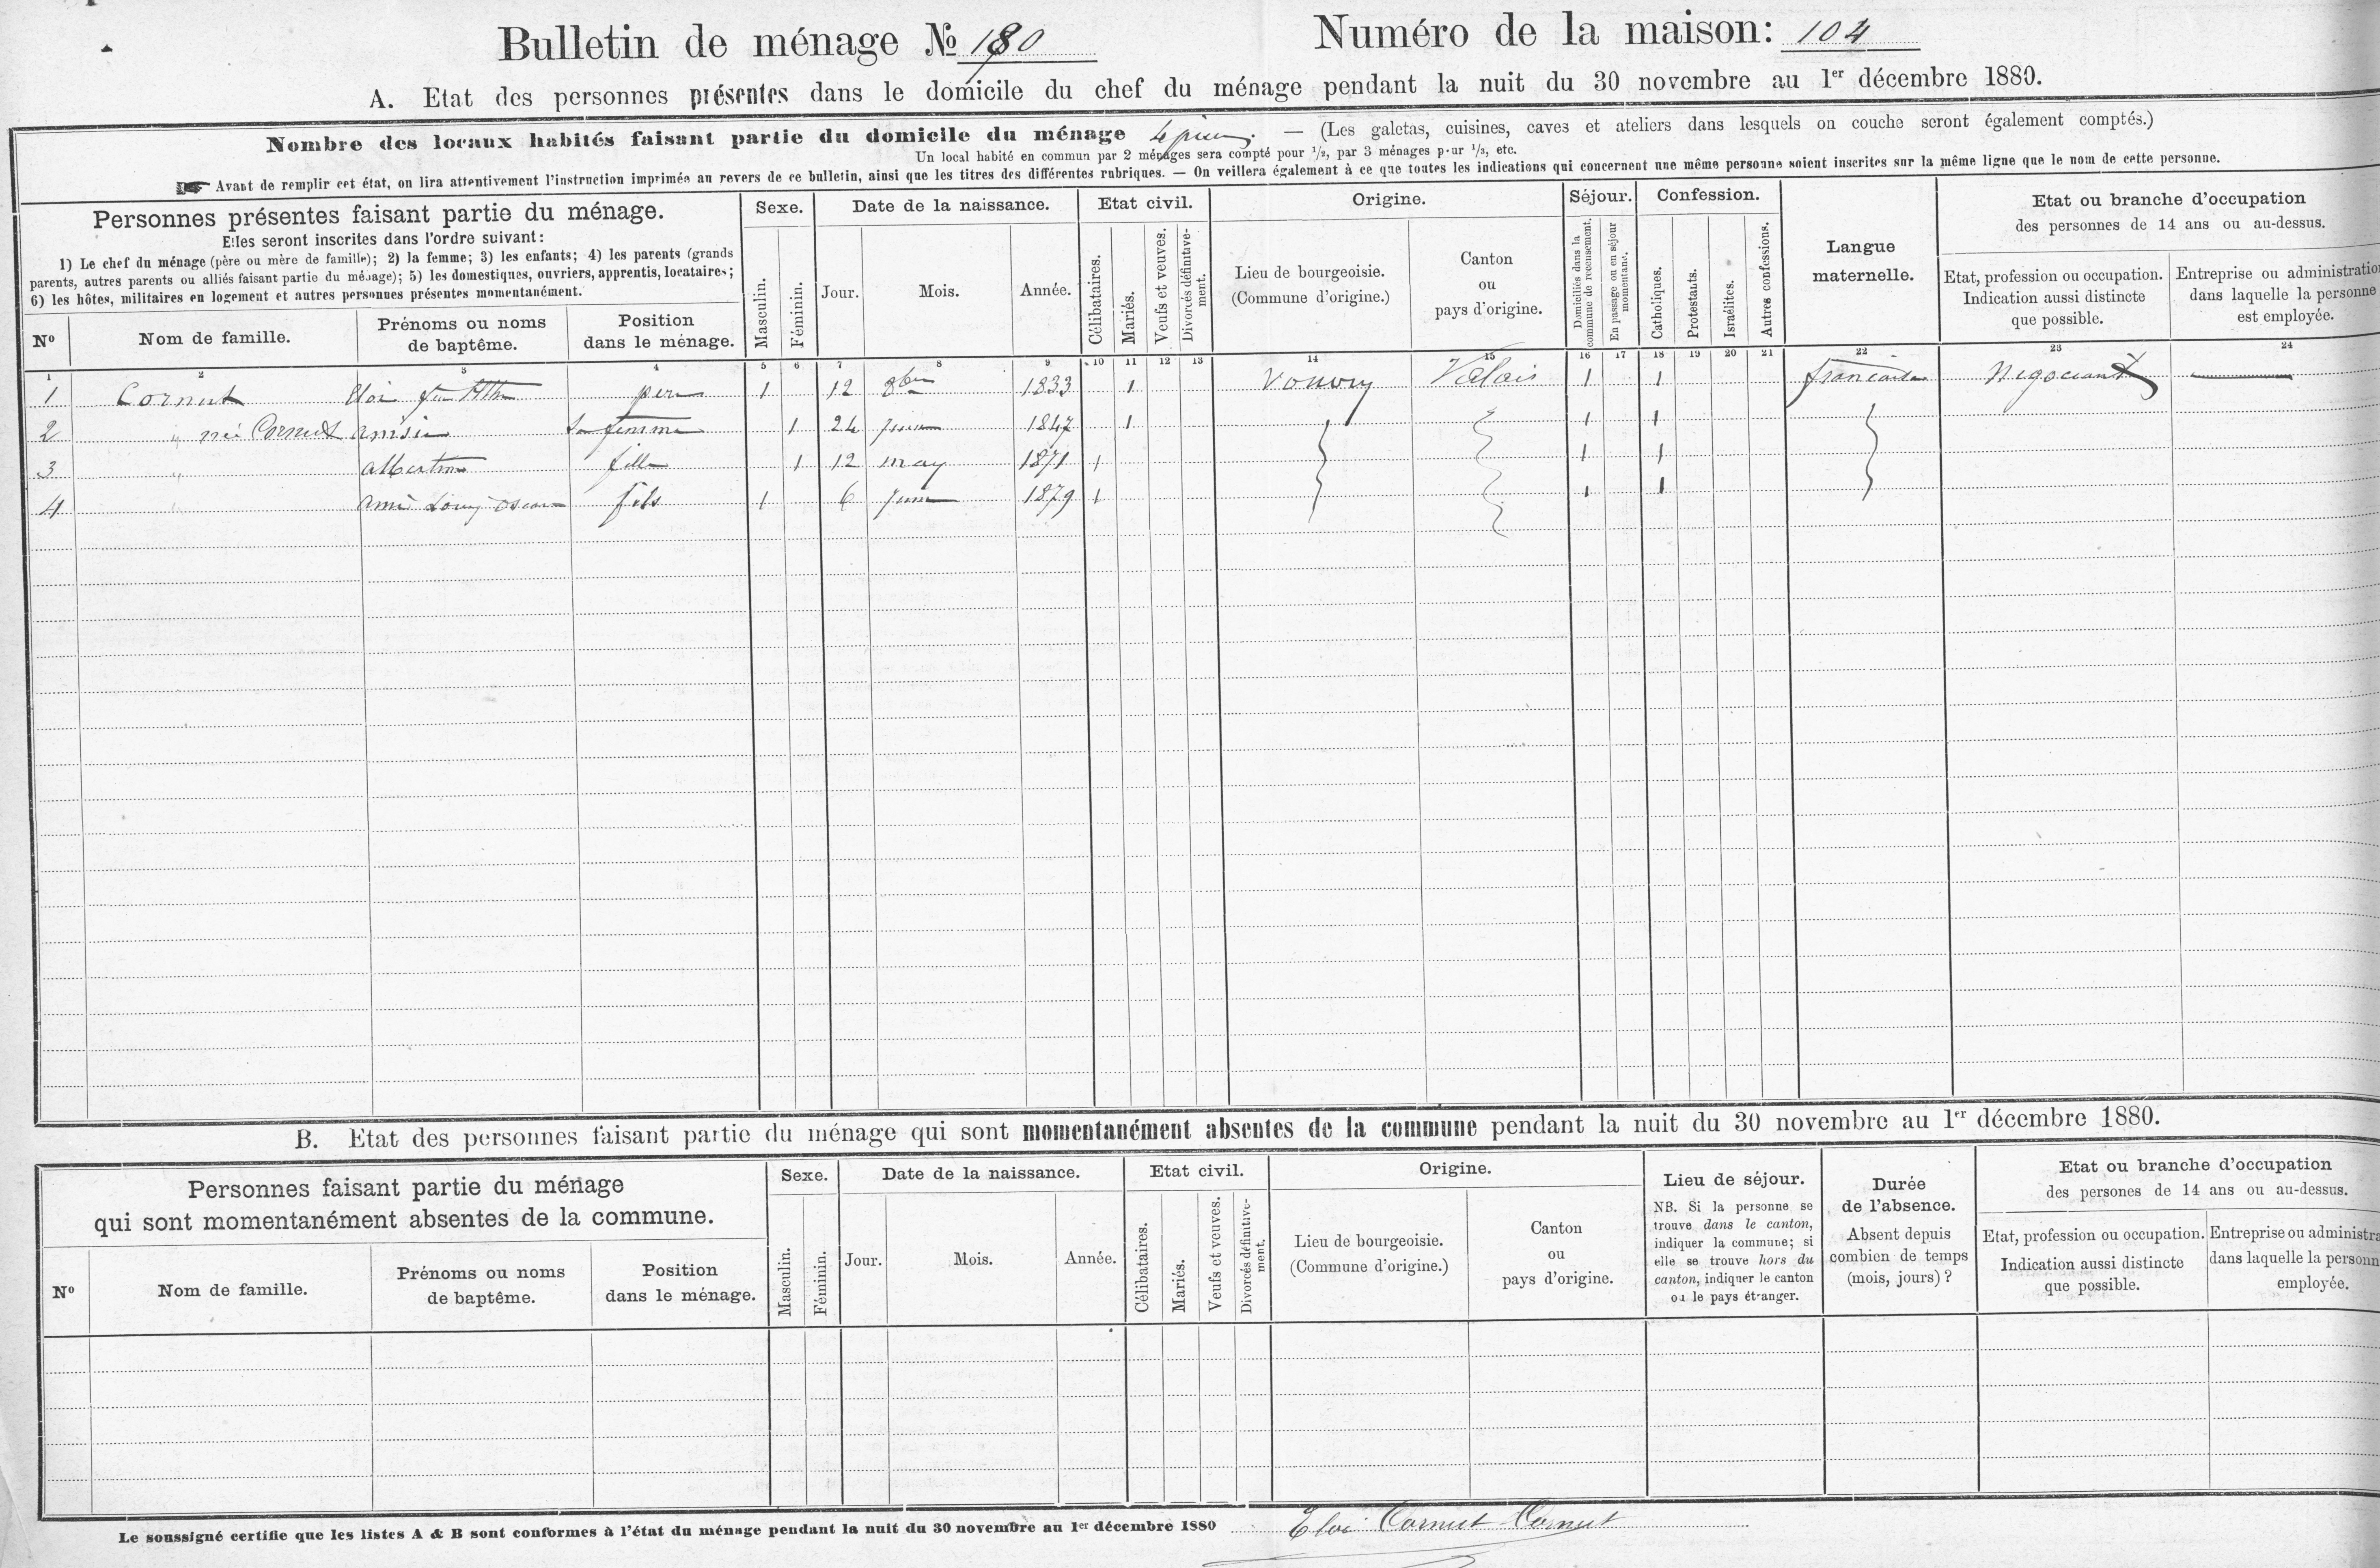 Bulletin de ménage № 190
Numéro de la maison: 104
A. Etat des personnes présentes dans le domicile du chef du ménage pendant la nuit du 30 novembre au 1er décembre 1880.
Nombre des locaux habités faisant partie du domicile du ménage 4 — (Les galetas, cuisines, caves et ateliers dans lesquels on couche seront également comptés.)
Un local habité en commun par 2 ménages sera compté pour 1/2, par 3 ménages pour 1/3, etc.
Avant de remplir cet état, on lira attentivement l'instruction imprimée au revers de ce bulletin, ainsi que les titres des différentes rubriques. — On veillera également à ce que toutes les indications qui concernent une même personne soient inscrites sur la même ligne que le nom de cette personne.
Personnes présentes faisant partie du ménage.
Elles seront inscrites dans l'ordre suivant:
1) Le chef du ménage (père ou mère de famille); 2) la femme; 3) les enfants; 4) les parents (grands
parents, autres parents ou alliés faisant partie du ménage); 5) les domestiques, ouvriers, apprentis, locataires;
6) les hôtes, militaires en logement et autres personnes présentes momentanément.
Nº
Nom de famille.
Prénoms ou noms
de baptême.
Position
dans le ménage.
Sexe.
Masculin.
Féminin.
Date de la naissance.
Jour.
Mois.
Année.
Etat civil.
Célibataires.
Mariés.
Veufs et veuves.
Divorcés définitive-
ment.
Origine.
Lieu de bourgeoisie.
(Commune d'origine.)
Canton
ou
pays d'origine.
Séjour.
Domiciliés dans la
commune de recensement.
En passage ou en séjour
momentané.
Confession.
Catholiques.
Protestants.
Israélites.
Autres confessions.
Langue
maternelle.
Etat ou branche d'occupation
des personnes de 14 ans ou au-dessus.
Etat, profession ou occupation.
Indication aussi distincte
que possible.
Entreprise ou administration
dans laquelle la personne
est employée.
1 2 3 4 5 6 7 8 9 10 11 12 13 14 15 16 17 18 19 20 21 22 23 24
1 Cornut Eloi feu père 1 12 8bre 1833 1 Vouvry Valais 1 1 française Négociant
2 " née Cornut sa femme 1 24 juin 1847 1 1 1
3 " Albertine fille 1 12 may 1871 1 1 1
4 " Amé Louis Oscar fils 1 6 juin 1879 1 1 1
B. Etat des personnes faisant partie du ménage qui sont momentanément absentes de la commune pendant la nuit du 30 novembre au 1er décembre 1880.
Personnes faisant partie du ménage
qui sont momentanément absentes de la commune.
Nº
Nom de famille.
Prénoms ou noms
de baptême.
Position
dans le ménage.
Sexe.
Masculin.
Féminin.
Date de la naissance.
Jour.
Mois.
Année.
Etat civil.
Célibataires.
Mariés.
Veufs et veuves.
Divorcés définitive-
ment.
Origine.
Lieu de bourgeoisie.
(Commune d'origine.)
Canton
ou
pays d'origine.
Lieu de séjour.
NB. Si la personne se
trouve dans le canton,
indiquer la commune; si
elle se trouve hors du
canton, indiquer le canton
ou le pays étranger.
Durée
de l'absence.
Absent depuis
combien de temps
(mois, jours)?
Etat ou branche d'occupation
des persones de 14 ans ou au-dessus.
Etat, profession ou occupation.
Indication aussi distincte
que possible.
Entreprise ou administra
dans laquelle la personn
employée.
Le soussigné certifie que les listes A & B sont conformes à l'état du ménage pendant la nuit du 30 novembre au 1er décembre 1880 Eloi Cornut Cornut